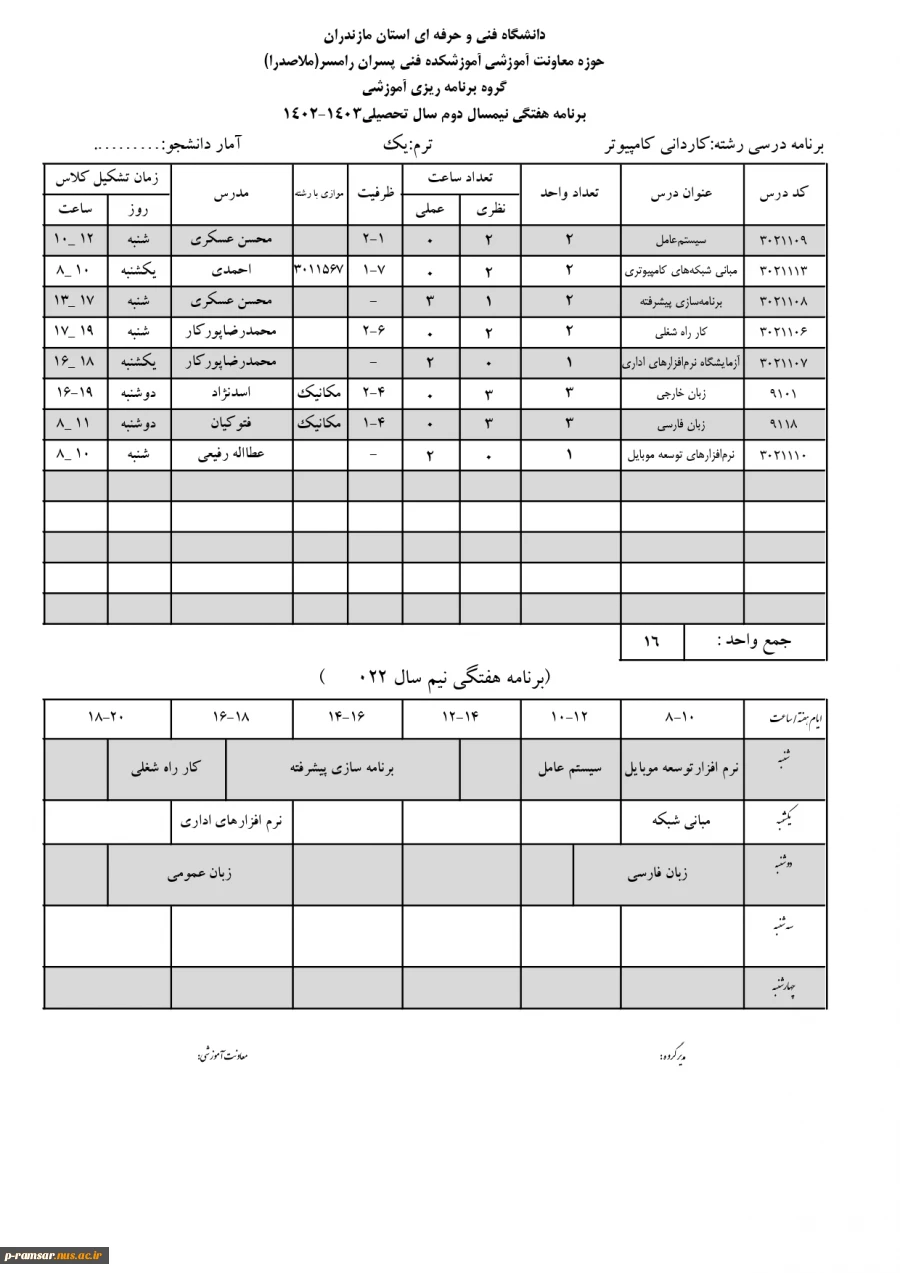 دانشگاه فنی و حرفه ای استان مازندران
حوزه معاونت آموزشی آموزشکده فنی پسران رامسر(ملاصدرا)
گروه برنامه ریزی آموزشی
برنامه هفتگی نیمسال دوم سال تحصیلی۱۴۰۳-۱۴۰۲
برنامه درسی رشته:کاردانی کامپیوتر ترم:یک آمار دانشجو:..........
کد درس عنوان درس تعداد واحد تعداد ساعت ظرفیت موازی با رشته مدرس زمان تشکیل کلاس
نظری عملی روز ساعت
۳۰۲۱۱۰۹ سیستم‌عامل ۲ ۲ ۰ ۲-۱ محسن عسکری شنبه ۱۰_ ۱۲
۳۰۲۱۱۱۳ مبانی شبکه‌های کامپیوتری ۲ ۲ ۰ ۱-۷ ۳۰۱۱۵۶۷ احمدی یکشنبه ۸_ ۱۰
۳۰۲۱۱۰۸ برنامه‌سازی پیشرفته ۲ ۱ ۳ - محسن عسکری شنبه ۱۳_ ۱۷
۳۰۲۱۱۰۶ کار راه شغلی ۲ ۲ ۰ ۲-۶ محمدرضاپورکار شنبه ۱۷_ ۱۹
۳۰۲۱۱۰۷ آزمایشگاه نرم‌افزارهای اداری ۱ ۰ ۲ - محمدرضاپورکار یکشنبه ۱۶_ ۱۸
۹۱۰۱ زبان خارجی ۳ ۳ ۰ ۲-۴ مکانیک اسدنژاد دوشنبه ۱۶-۱۹
۹۱۱۸ زبان فارسی ۳ ۳ ۰ ۱-۴ مکانیک فتوکیان دوشنبه ۸_ ۱۱
۳۰۲۱۱۱۰ نرم‌افزارهای توسعه موبایل ۱ ۰ ۲ - عطااله رفیعی شنبه ۸_ ۱۰
جمع واحد : ۱۶
(برنامه هفتگی نیم سال ۰۲۲ )
ایام هفته/ساعت ۸-۱۰ ۱۰-۱۲ ۱۲-۱۴ ۱۴-۱۶ ۱۶-۱۸ ۱۸-۲۰
شنبه نرم افزار توسعه موبایل سیستم عامل برنامه سازی پیشرفته کار راه شغلی
یکشنبه مبانی شبکه نرم افزارهای اداری
دوشنبه زبان فارسی زبان عمومی
سه شنبه
چهارشنبه
مدیر گروه: معاونت آموزشی:
p-ramsar.nus.ac.ir